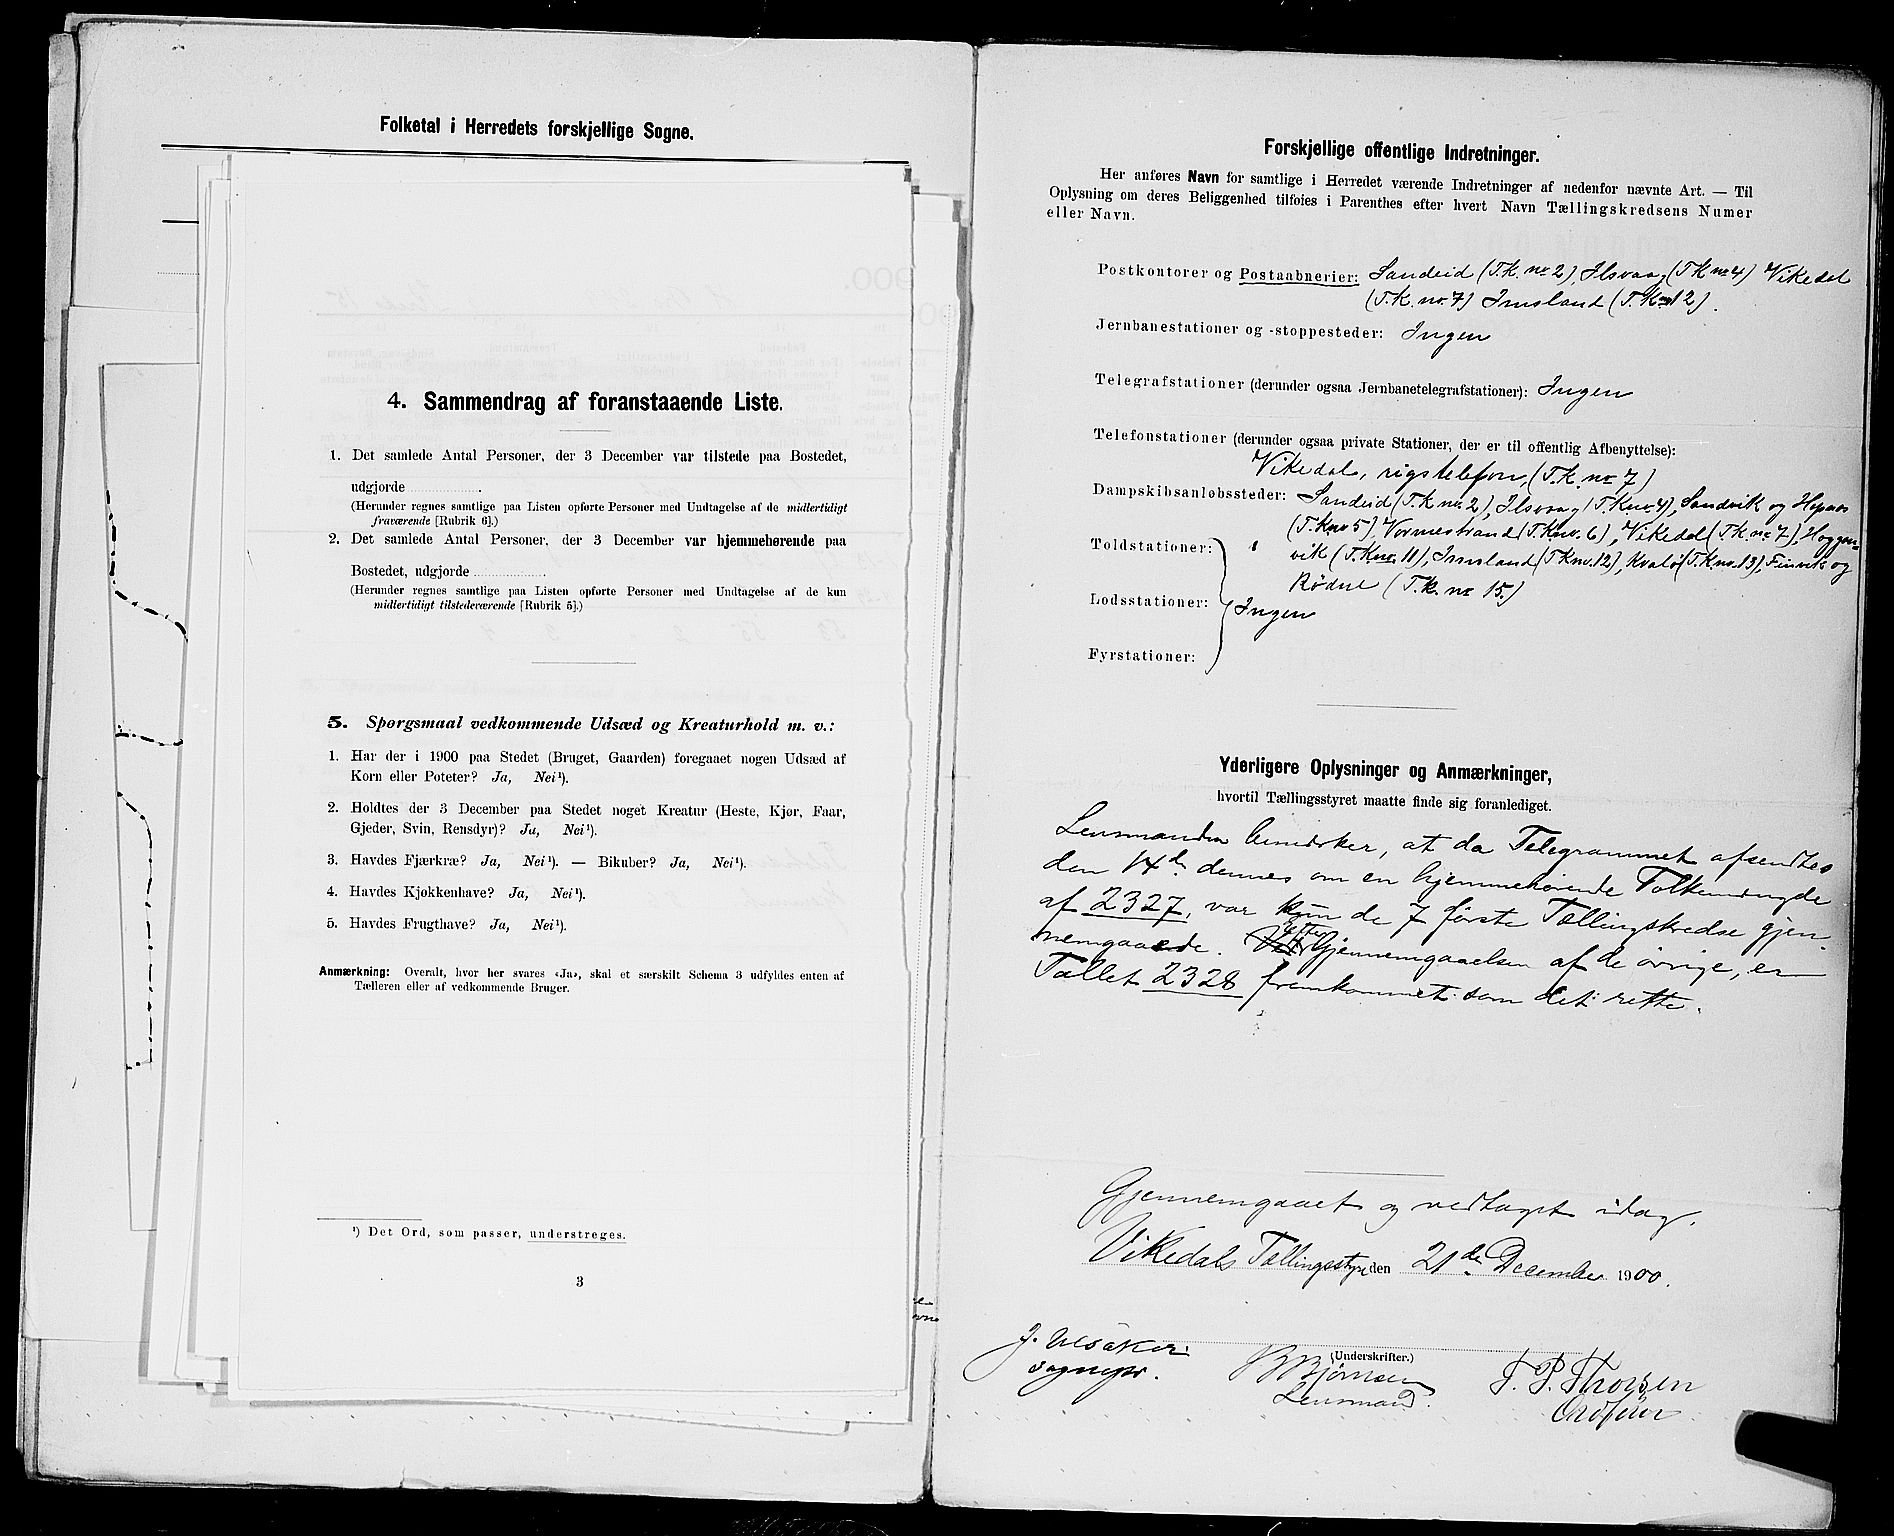 Folketal i Herredets forskjellige Sogne.
4. Sammendrag af foranstaaende Liste.
1. Det samlede Antal Personer, der 3 December var tilstede paa Bostedet,
udgjorde
(Herunder regnes samtlige paa Listen opførte Personer med Undtagelse af de midlertidigt
fraværende [Rubrik 6].)
2. Det samlede Antal Personer, der 3 December var hjemmehørende paa
Bostedet, udgjorde
(Herunder regnes samtlige paa Listen opførte Personer med Undtagelse af de kun
midlertidigt tilstedeværende [Rubrik 5].)
5. Spørgsmaal vedkommende Udsæd og Kreaturhold m. v.:
1. Har der i 1900 paa Stedet (Bruget, Gaarden) foregaaet nogen Udsæd af
Korn eller Poteter? Ja, Nei¹).
2. Holdtes der 3 December paa Stedet noget Kreatur (Heste, Kjør, Faar,
Gjeder, Svin, Rensdyr)? Ja, Nei¹).
3. Havdes Fjærkræ? Ja, Nei¹). — Bikuber? Ja, Nei¹).
4. Havdes Kjøkkenhave? Ja, Nei¹).
5. Havdes Frugthave? Ja, Nei¹).
Anmærkning: Overalt, hvor her svares «Ja», skal et særskilt Schema 3 udfyldes enten af
Tælleren eller af vedkommende Bruger.
¹) Det Ord, som passer, understreges.
3
Forskjellige offentlige Indretninger.
Her anføres Navn for samtlige i Herredet værende Indretninger af nedenfor nævnte Art. — Til
Oplysning om deres Beliggenhed tilføies i Parenthes efter hvert Navn Tællingskredsens Numer
eller Navn.
Postkontorer og Postaabnerier: Sandeid (T.K. no. 2), Ilsvaag (T K no 4) Vikedal
(T.K. no. 7) Imsland (T.K no 12).
Jernbanestationer og -stoppesteder: Ingen
Telegrafstationer (derunder ogsaa Jernbanetelegrafstationer): Ingen
Telefonstationer (derunder ogsaa private Stationer, der er til offentlig Afbenyttelse):
Vikedal, rigstelefon, (T.K. no 7)
Dampskibsanløbssteder: Sandeid (T.K no. 2), Ilsvaag (T.K no. 4), Sandvik og
(T.K no 5) Vormestrand (T.K no. 6), Vikedal (T.K. no 7), Hoggen-
Toldstationer: vik (T.K no. 11), Imsland (T K no. 12), Kvalø (T.K. no. 13), Finvik og
Rødne (T.K. no 15.)
Lodsstationer: Ingen
Fyrstationer:
Yderligere Oplysninger og Anmærkninger,
hvortil Tællingsstyret maatte finde sig foranlediget.
Lensmanden bemærker, at da Telegrammet afsendtes
den 14de dennes om en hjemmehørende Folkemængde
af 2327, var kun de 7 første Tællingskredse gjen-
nemgaaede. Efter Gjennemgaaelsen af de øvrige, er
Tallet 2328 fremkommet som det rette.
Gjennemgaaet og vedtaget idag.
Vikedals Tællingsstyre den 21de December 1900.
(Underskrifter.)
J. sognepr.
B Bjørnsen
Lensmand.
T. P. Thorsen
Ordfører